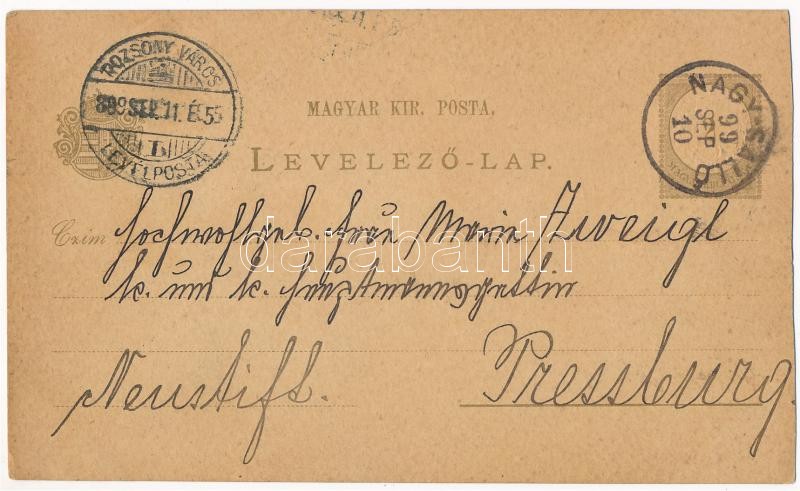 POZSONY VÁROS
899 SEP. 11. É. 5
LEVÉLPOSTA
NAGY-SALLÓ
99
SEP
10
MAGYAR KIR. POSTA.
LEVELEZŐ-LAP.
Czím
Hochwohlgeb. Frau Marie Zweigl
k. und k. Hauptmannsgattin
Neustift.
Pressburg.
darabanth